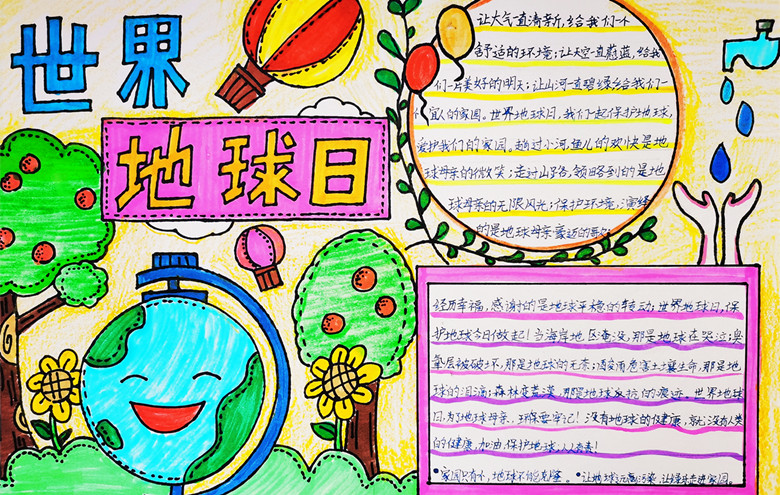 世界
地球日
让大气一直清新,给我们一个
舒适的环境;让天空一直蔚蓝,给我
们一片美好的明天;让山河一直碧绿,给我们一
个宜人的家园。世界地球日,我们一起保护地球,
爱护我们的家园。趟过小河,鱼儿的欢快是地
球母亲的微笑;走过山路,领略到的是地
球母亲的无限风光;保护环境,演绎
的是地球母亲豪迈的
经历幸福,感谢的是地球平稳的转动;世界地球日,保
护地球今日做起!当海岸地区淹没,那是地球在哭泣;臭
氧层被破坏,那是地球的无奈;酸雨危害土壤生命,那是地
球的泪滴;森林变荒漠,那是地球反抗的痕迹。世界地球
日,为了地球母亲,环保要牢记!没有地球的健康,就没有人类
的健康,加油,保护地球,人人参与!
•家园只有个,地球不能克隆。•让地球远离污染,让绿色走进家园。